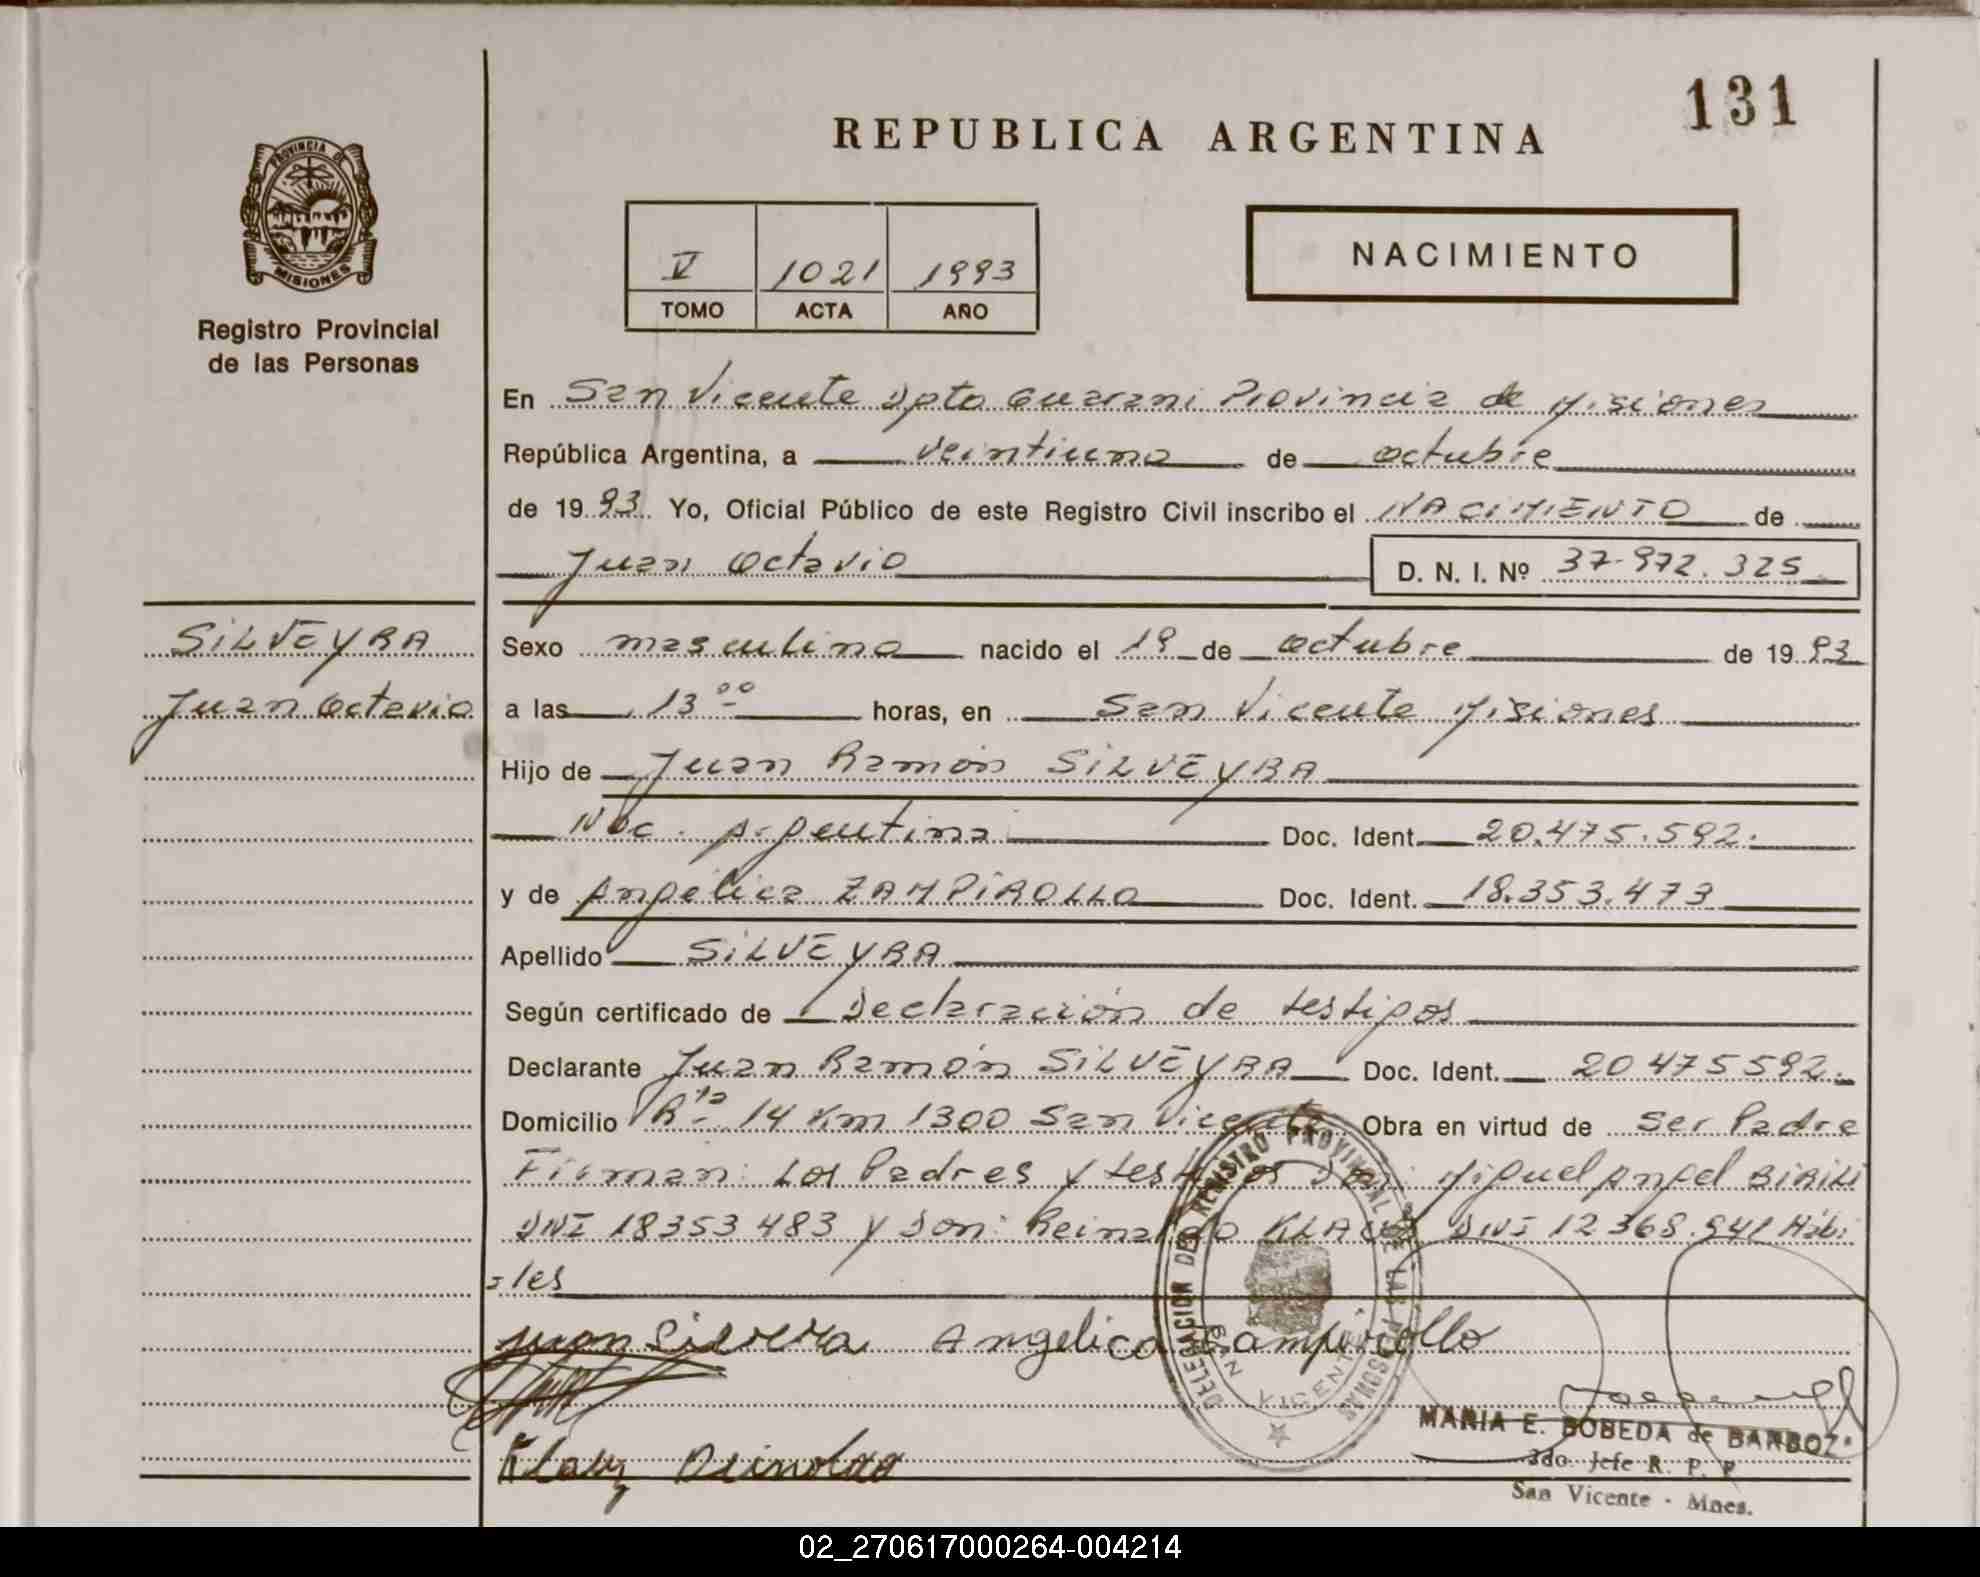 131
REPUBLICA ARGENTINA
PROVINCIA DE
MISIONES
Registro Provincial
de las Personas
V 1021 1993
TOMO ACTA AÑO
NACIMIENTO
En San Vicente Dpto Guarani Provincia de Misiones
República Argentina, a veintiuno de octubre
de 1993. Yo, Oficial Público de este Registro Civil inscribo el NACIMIENTO de
Juan Octavio D. N. I. Nº 37.972.325
SILVEYRA
Juan Octavio
Sexo masculino nacido el 19 de octubre de 1993
a las 13 00 horas, en San Vicente Misiones
Hijo de Juan Ramón SILVEYRA
Nac. Argentina Doc. Ident. 20.475.592.
y de Angélica ZAMPIROLLO Doc. Ident. 18.353.473
Apellido SILVEYRA
Según certificado de Declaración de testigos
Declarante Juan Ramón SILVEYRA Doc. Ident. 20475592.
Domicilio Rta 14 Km 1300 San Vicente Obra en virtud de Ser Padre
Firman: Los Padres y testigos Don: Miguel Angel
DNI 18353483 y Don: Reinaldo DNI 12368.941 Hábi
=les
Juan Angelica Zampirollo
DELEGACION DEL REGISTRO PROVINCIAL DE LAS PERSONAS
SAN VICENTE
MARIA E. BOBEDA de BARBOZA
2do. Jefe R. P. P.
San Vicente - Mnes.
02_270617000264-004214